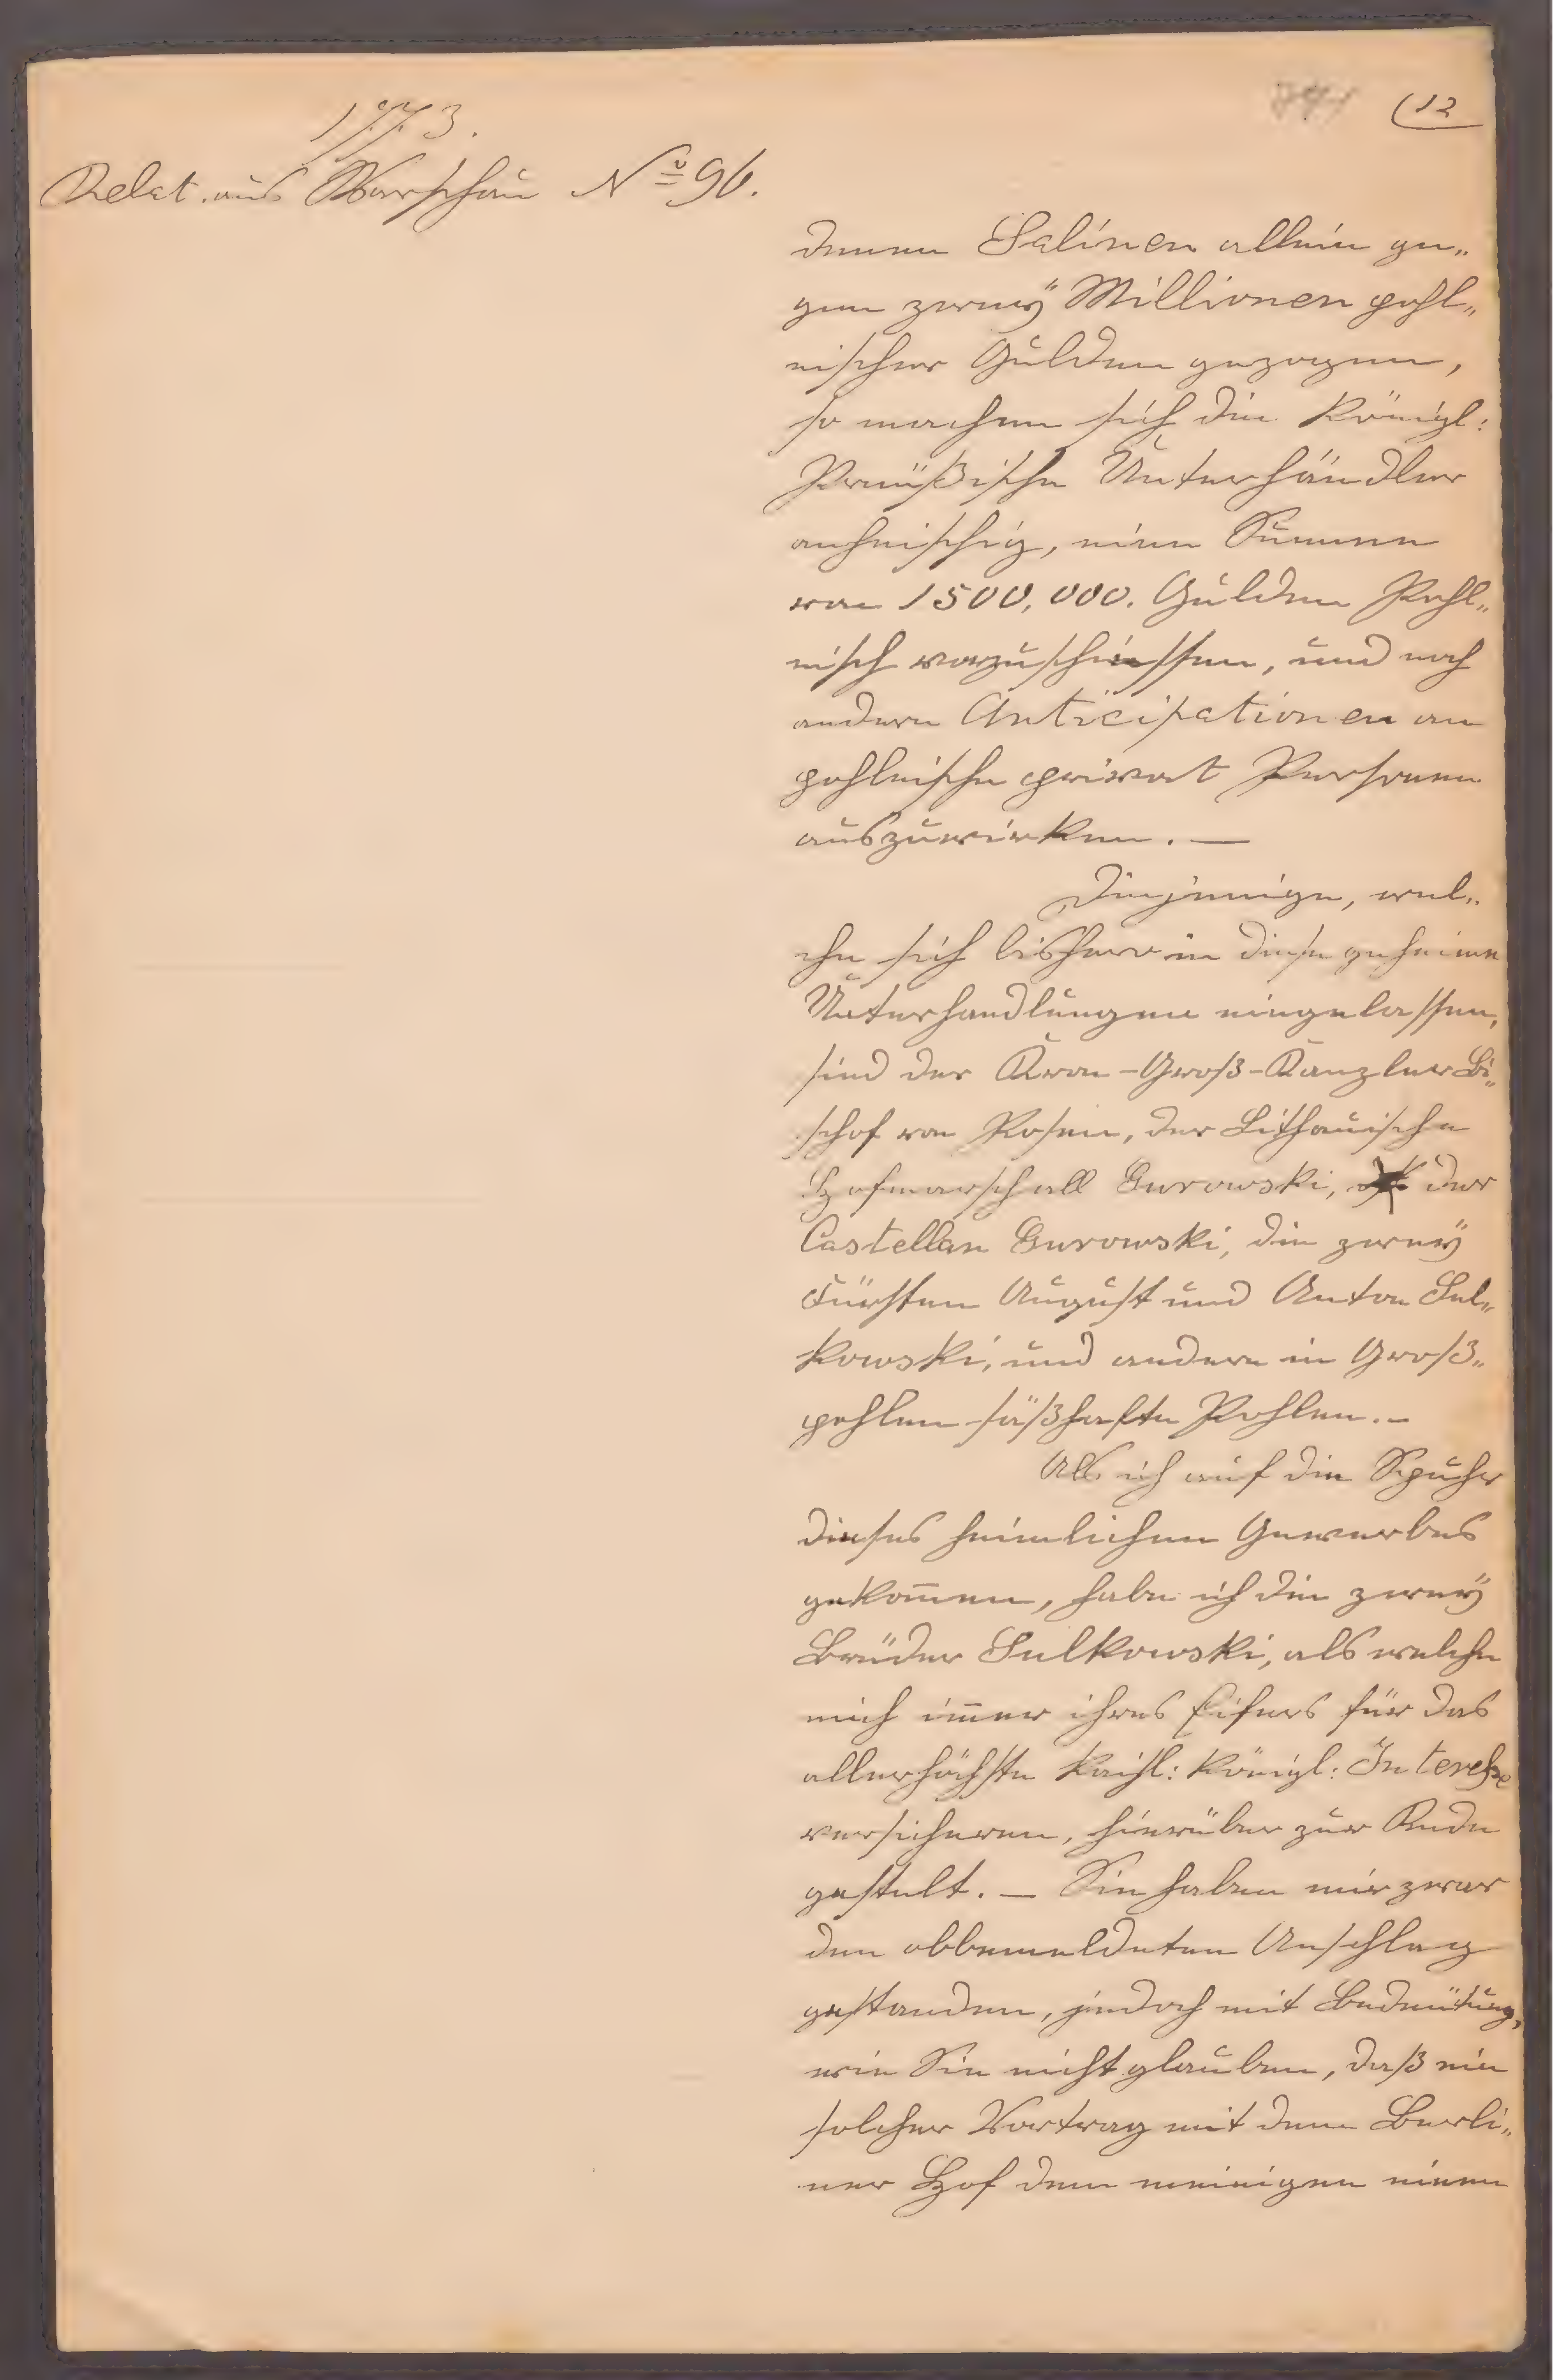 1773.
(12
Relat. aus Warschau No 96.
denen Salinen allein ge„
gen zweÿ Millionen pohl„
nischer Gulden gezogen,
so machen sich die Königl:
Preüßische Unterhändler
anheischig, eine Summe
von 1500,000. Gulden Pohl„
nisch vorzuschiessen, und noch
andere Anticipationen an
pohlnische privat Personen
auszuwirken. —
Diejenige, wel„
che sich bisher in diese geheime
Unterhandlungen eingelassen,
sind der Kron-Groß-Kanzler Bi„
schof von Posen, der Lithauische
Hofmarschall Gurowski, der
Castellan Gurowski, die zweÿ
Fürsten August und Anton Sul„
kowski, und andere in Groß„
pohlen säßhafte Pohlen. —
Als ich auf die Spuhr
dieses heimlichen Gewerbes
gekom̅en, habe ich die zweÿ
Brüder Sulkowski, als welche
mich im̅er ihres Eifers für das
allerhöchste kaisl: königl: Interesse
versicheren, hierüber zur Rede
gestelt. — Sie haben mir zwar
den obbemeldeten Anschlag
gestanden, jedoch mit Bedeütung,
wie Sie nicht glauben, daß ein
solcher Vortrag mit dem Berli„
ner Hof dem meinigen einen